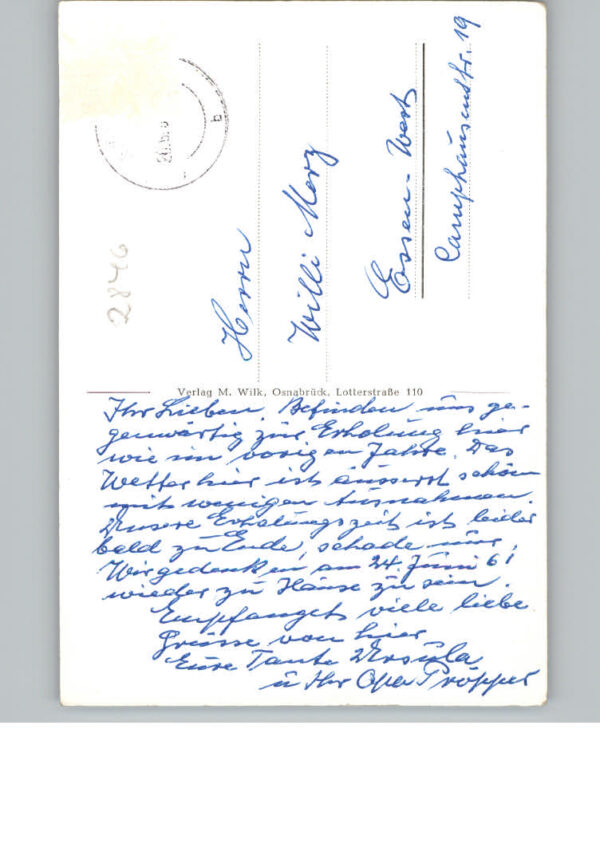 Herrn
Willi Merz
Essen-West
Camphausenstr. 19
2846
b
Verlag M. Wilk, Osnabrück, Lotterstraße 110
Ihr Lieben. Befinden uns ge-
genwärtig zur Erholung hier
wie im vorigen Jahre. Das
Wetter hier ist äusserst schön
mit wenigen Ausnahmen.
Unsere Erholungszeit ist leider
bald zu Ende, schade nur,
Wir gedenken am 24. Juni 61
wieder zu Hause zu sein.
Empfanget viele liebe
Grüsse von hier
Eure Tante Ursula
u Ihr Opa Pröpper